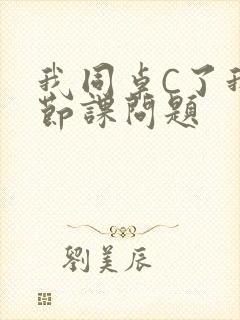 我同卓C了我
節課問題
劉美辰